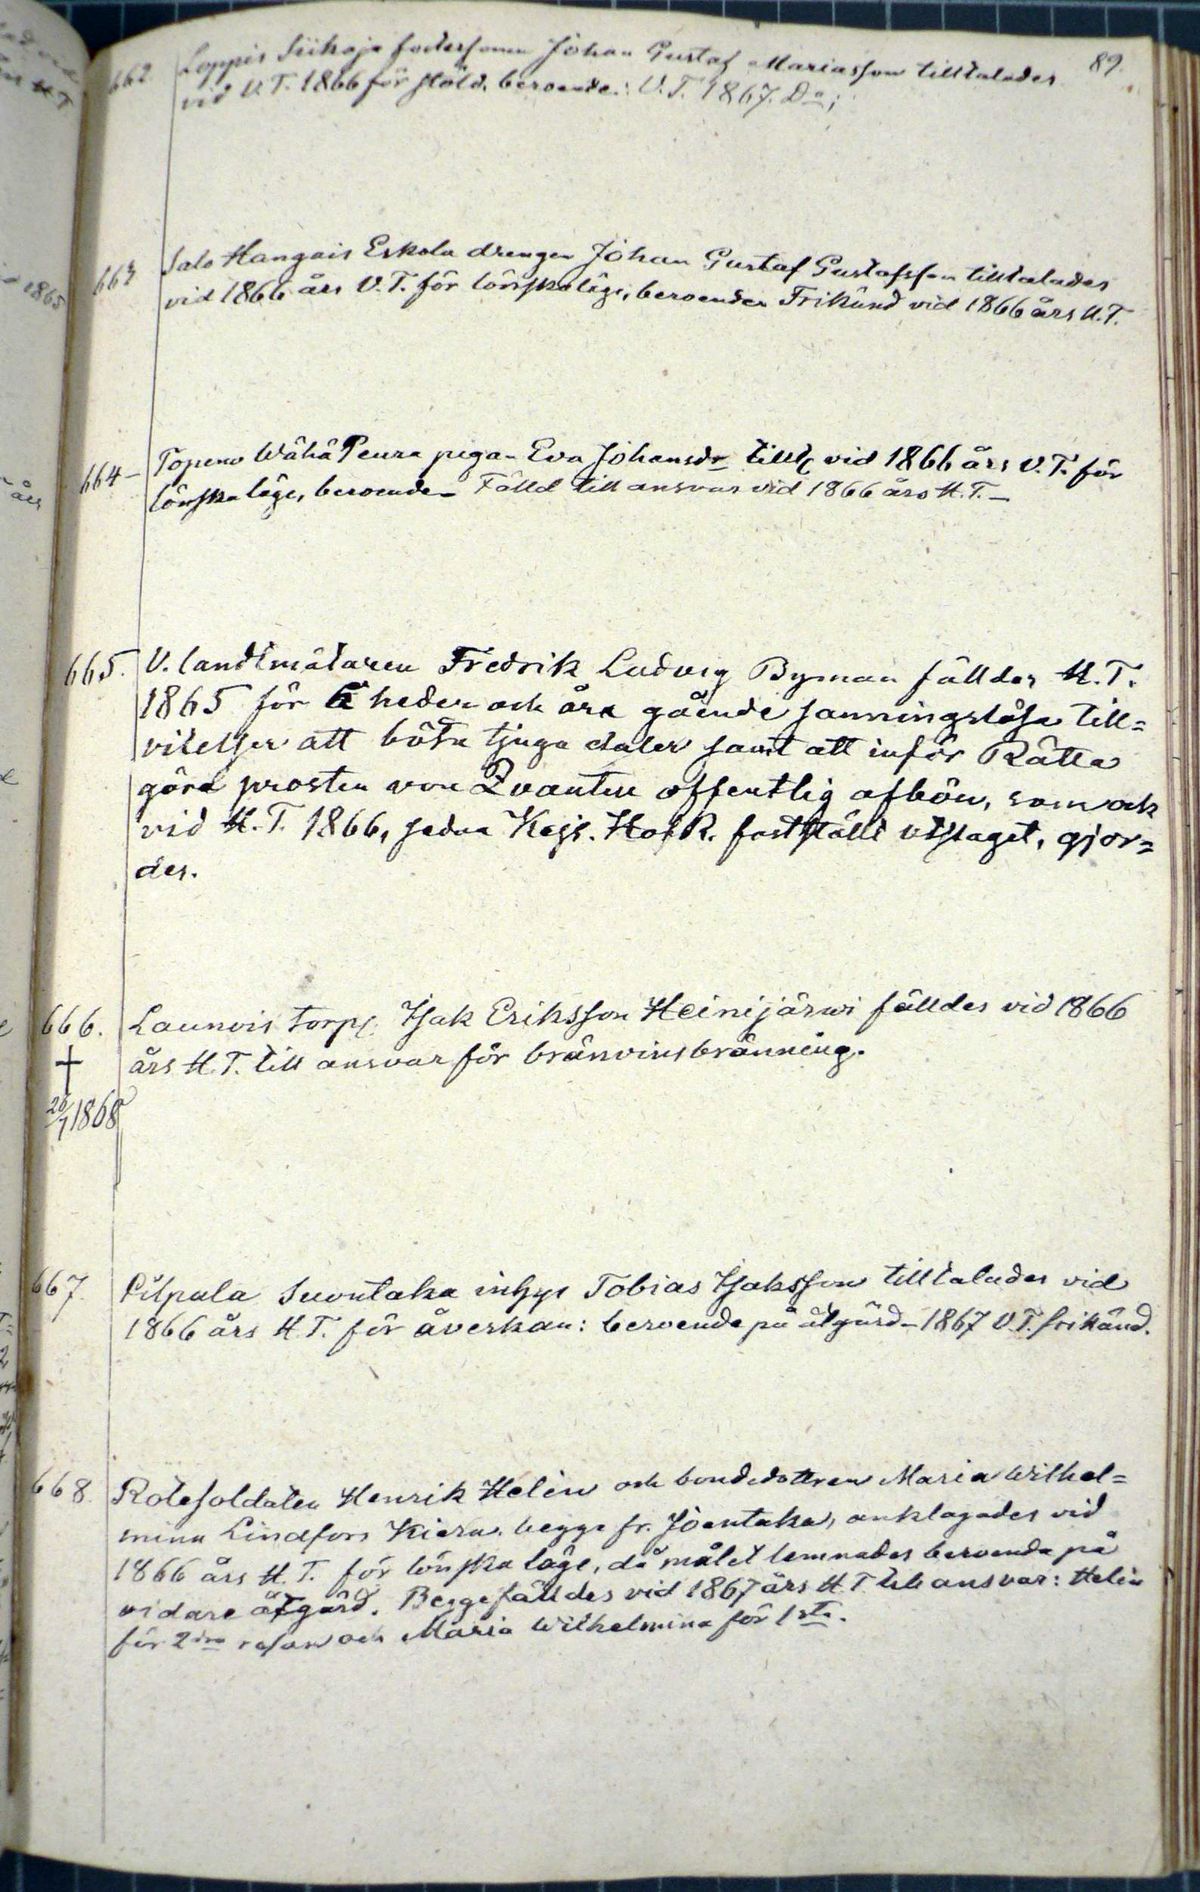 89.
662 Loppis Siikoja fostersonen Johan Gustaf Mariasson tilltalades
vid V.T. 1866 för stöld, beroende: V.T. 1867. Do;
663 Salo Hangais Eskola drengen Johan Gustaf Gustafsson tilltalades
vid 1866 års V.T. för lönskaläge, beroende. Frikänd vid 1866 års H.T.
664 – Topeno Wähä Peura pigan Eva Johansdr tillt. vid 1866 års V.T. för
lönskaläge, beroende – Fälld till ansvar vid 1866 års H.T. –
665. V. landtmätaren Fredrik Ludvig Byman fälldes H.T.
1865 för heder och ära gående sanningslösa till=
vitelser att böta tjugo daler samt att inför Rätta
göra prosten von Qvanten offentlig afbön, som ock
vid H.T. 1866, sedan Kejs. HofR. fastställt utslaget, gjor=
des.
666. Launois torp. Isak Eriksson Heinijärwi fälldes vid 1866
† års H.T. till ansvar för bränvinsbränning.
26/7 1868
667. Pilpala Suontaka inhys Tobias Isaksson tilltalades vid
1866 års H.T. för åverkan: beroende på åtgärd – 1867 V.T. frikänd.
668. Rotesoldaten Henrik Helin och bondedottren Maria Wilhel=
mina Lindfors Kiera, begge fr. Joentaka, anklagades vid
1866 års H.T. för lönska läge, då målet lemnades beroende på
vidare åtgärd. Begge fälldes vid 1867 års H.T. till ansvar: Helin
för 2dra resan och Maria Wilhelmina för 1sta.